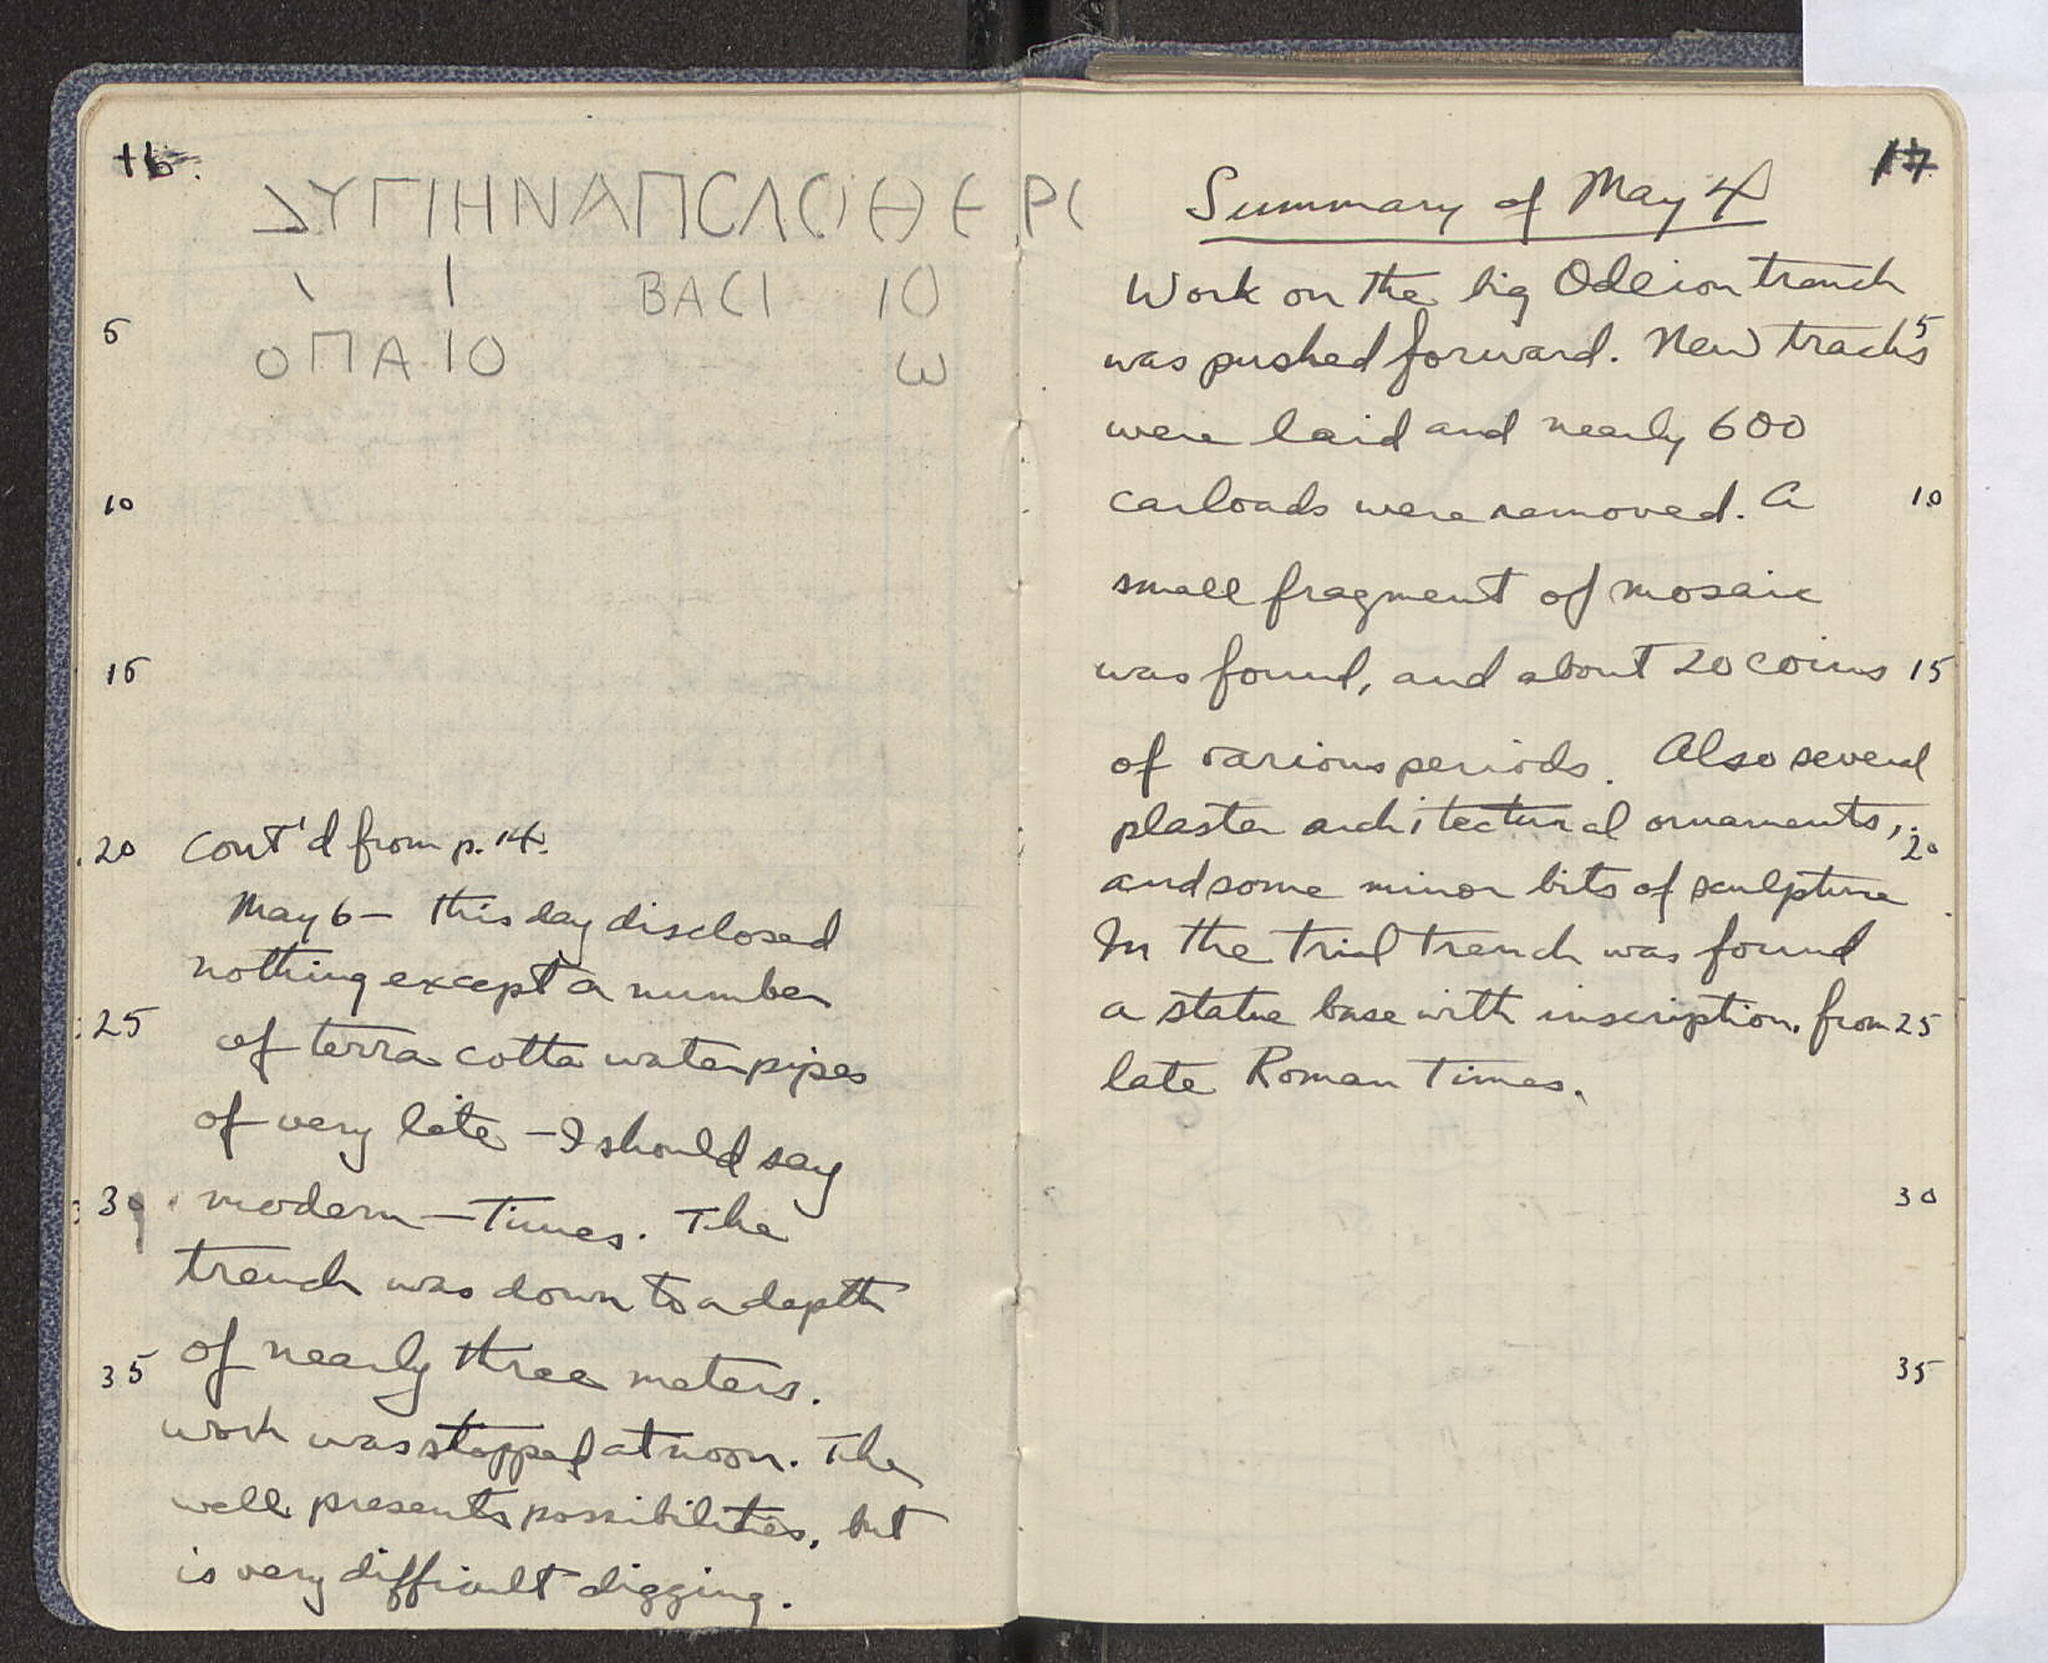 16.
ΔΥΓΙΗΝΑΠCΛΟΘΕΡC
\ Ι ΒΑCΙ ΙΟ
5
ΟΠΑΙΟ ω
10
15
20 Cont'd from p. 14.
May 6 – this day disclosed
nothing except a number
25 of terra cotta water pipes
of very late – I should say
30 modern – times. The
trench was down to a depth
of nearly three meters.
35
work was stopped at noon. The
well presents possibilities, but
is very difficult digging.
17
Summary of May 4
Work on the big Odeion trench
was pushed forward. New tracks 5
were laid and nearly 600
carloads were removed. A 10
small fragment of mosaic
was found, and about 20 coins 15
of various periods. Also several
plaster architectural ornaments,
20
and some minor bits of sculpture
In the trial trench was found
a statue base with inscription. from 25
late Roman times.
30
35